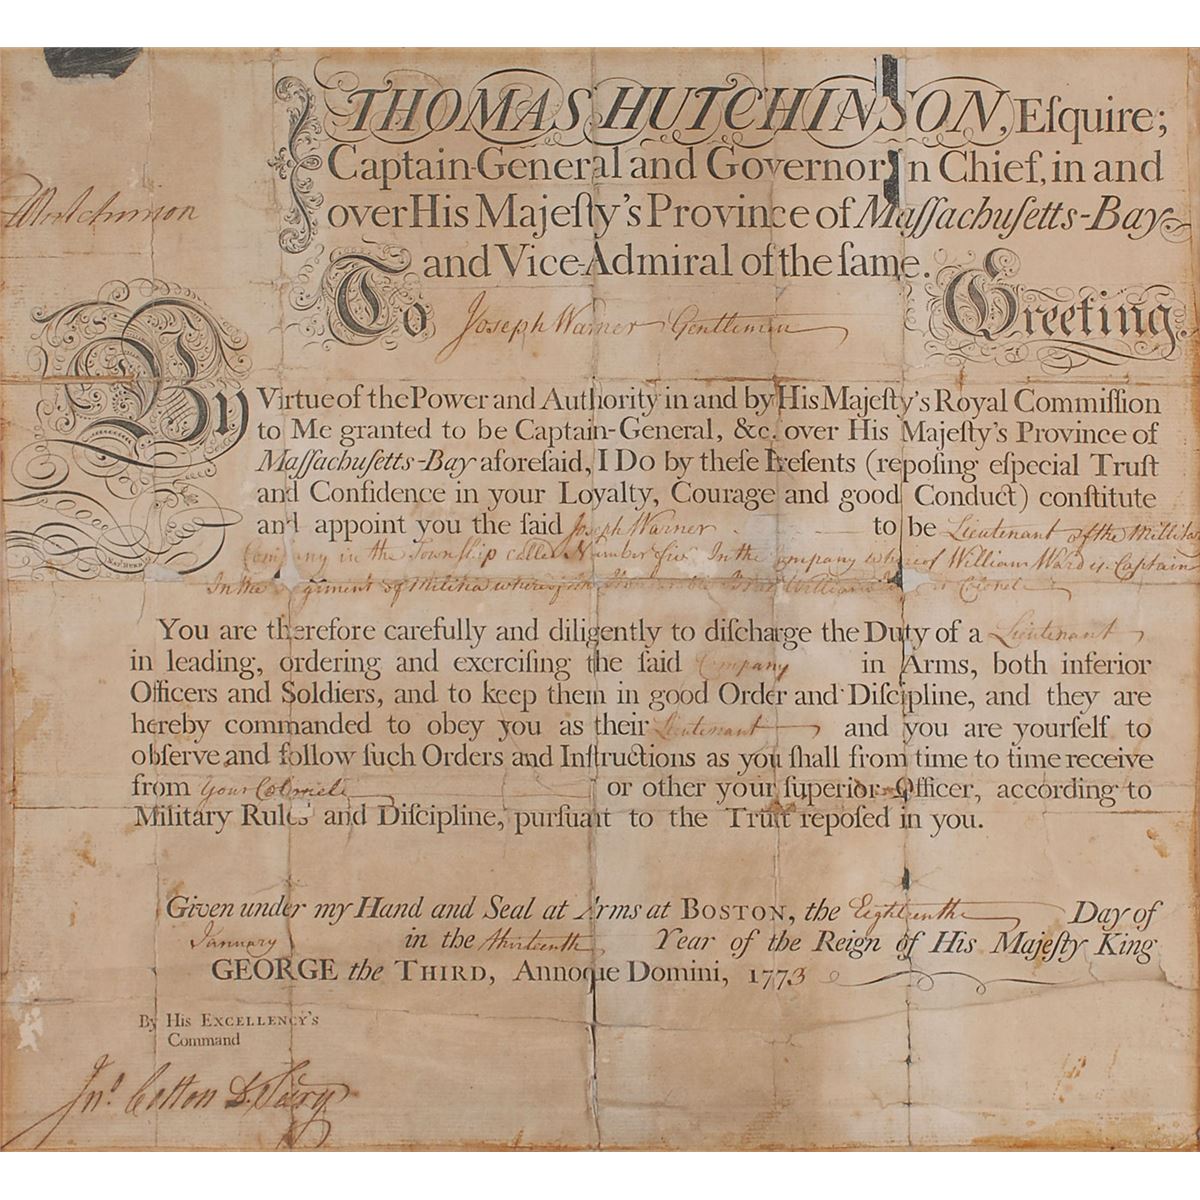 THOMAS HUTCHINSON, Eſquire;
Captain-General and Governor in Chief, in and
over His Majeſty's Province of Maſſachuſetts-Bay
and Vice-Admiral of the ſame.
Hutchinson
To Joseph Warner Gentleman Greeting.
By Virtue of the Power and Authority in and by His Majeſty's Royal Commiſſion
to Me granted to be Captain-General, &c. over His Majeſty's Province of
Maſſachuſetts-Bay aforeſaid, I DO by theſe Preſents (repoſing eſpecial Truſt
and Confidence in your Loyalty, Courage and good Conduct) conſtitute
and appoint you the ſaid Joseph Warner to be Lieutenant of the Millitary
Company in the Township called Number five In the company whereof William Ward is Captain
In the Regiment of Militia whereof Williams is Colonel
You are therefore carefully and diligently to diſcharge the Duty of a Lieutenant
in leading, ordering and exerciſing the ſaid Company in Arms, both inferior
Officers and Soldiers, and to keep them in good Order and Diſcipline, and they are
hereby commanded to obey you as their Lieutenant and you are yourſelf to
obſerve and follow ſuch Orders and Inſtructions as you ſhall from time to time receive
from your Colonel or other your ſuperior Officer, according to
Military Rules and Diſcipline, purſuant to the Truſt repoſed in you.
Given under my Hand and Seal at Arms at BOSTON, the Eighteenth Day of
January in the thirteenth Year of the Reign of His Majeſty King
GEORGE the THIRD, Annoque Domini, 1773
By His EXCELLENCY'S
Command
Jnº Cotton D. Secry